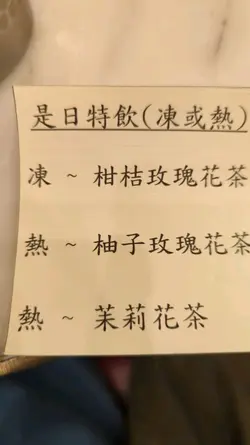 是日特飲(凍或熱)
凍 ~ 柑桔玫瑰花茶
熱 ~ 柚子玫瑰花茶
熱 ~ 茉莉花茶